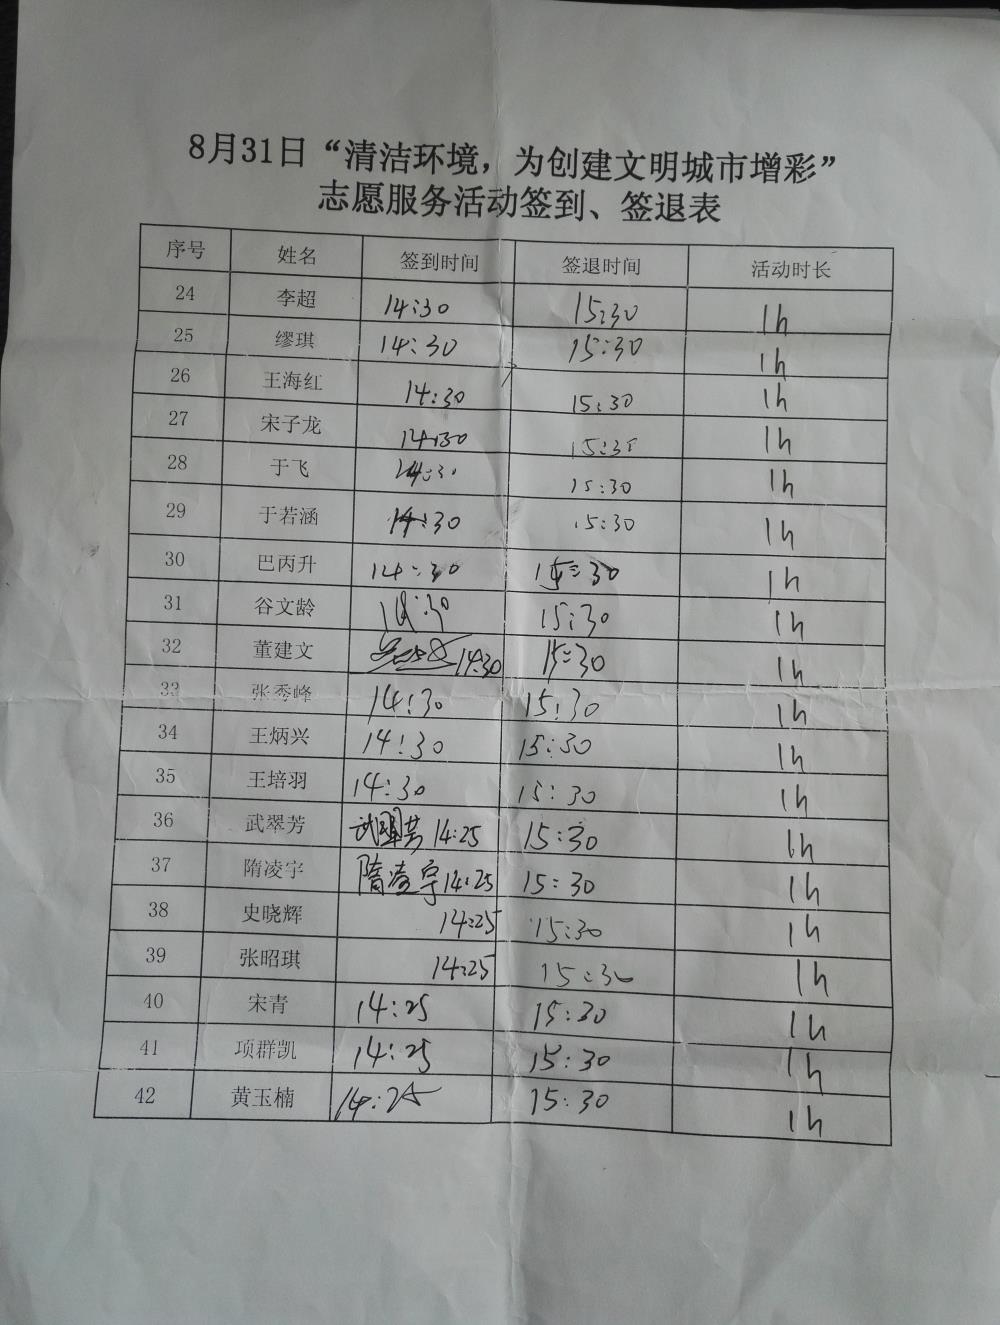 8月31日“清洁环境，为创建文明城市增彩”
志愿服务活动签到、签退表
序号 姓名 签到时间 签退时间 活动时长
24 李超 14:30 15:30 1h
25 缪琪 14:30 15:30 1h
26 王海红 14:30 15:30 1h
27 宋子龙 14:30 15:30 1h
28 于飞 14:30 15:30 1h
29 于若涵 14:30 15:30 1h
30 巴丙升 14:30 15:30 1h
31 谷文龄 15:30 1h
32 董建文 14:30 15:30 1h
33 张秀峰 14:30 15:30 1h
34 王炳兴 14:30 15:30 1h
35 王培羽 14:30 15:30 1h
36 武翠芳 武翠芳 14:25 15:30 1h
37 隋凌宇 隋凌宇 14:25 15:30 1h
38 史晓辉 14:25 15:30 1h
39 张昭琪 14:25 15:30 1h
40 宋青 14:25 15:30 1h
41 项群凯 14:25 15:30 1h
42 黄玉楠 14:25 15:30 1h